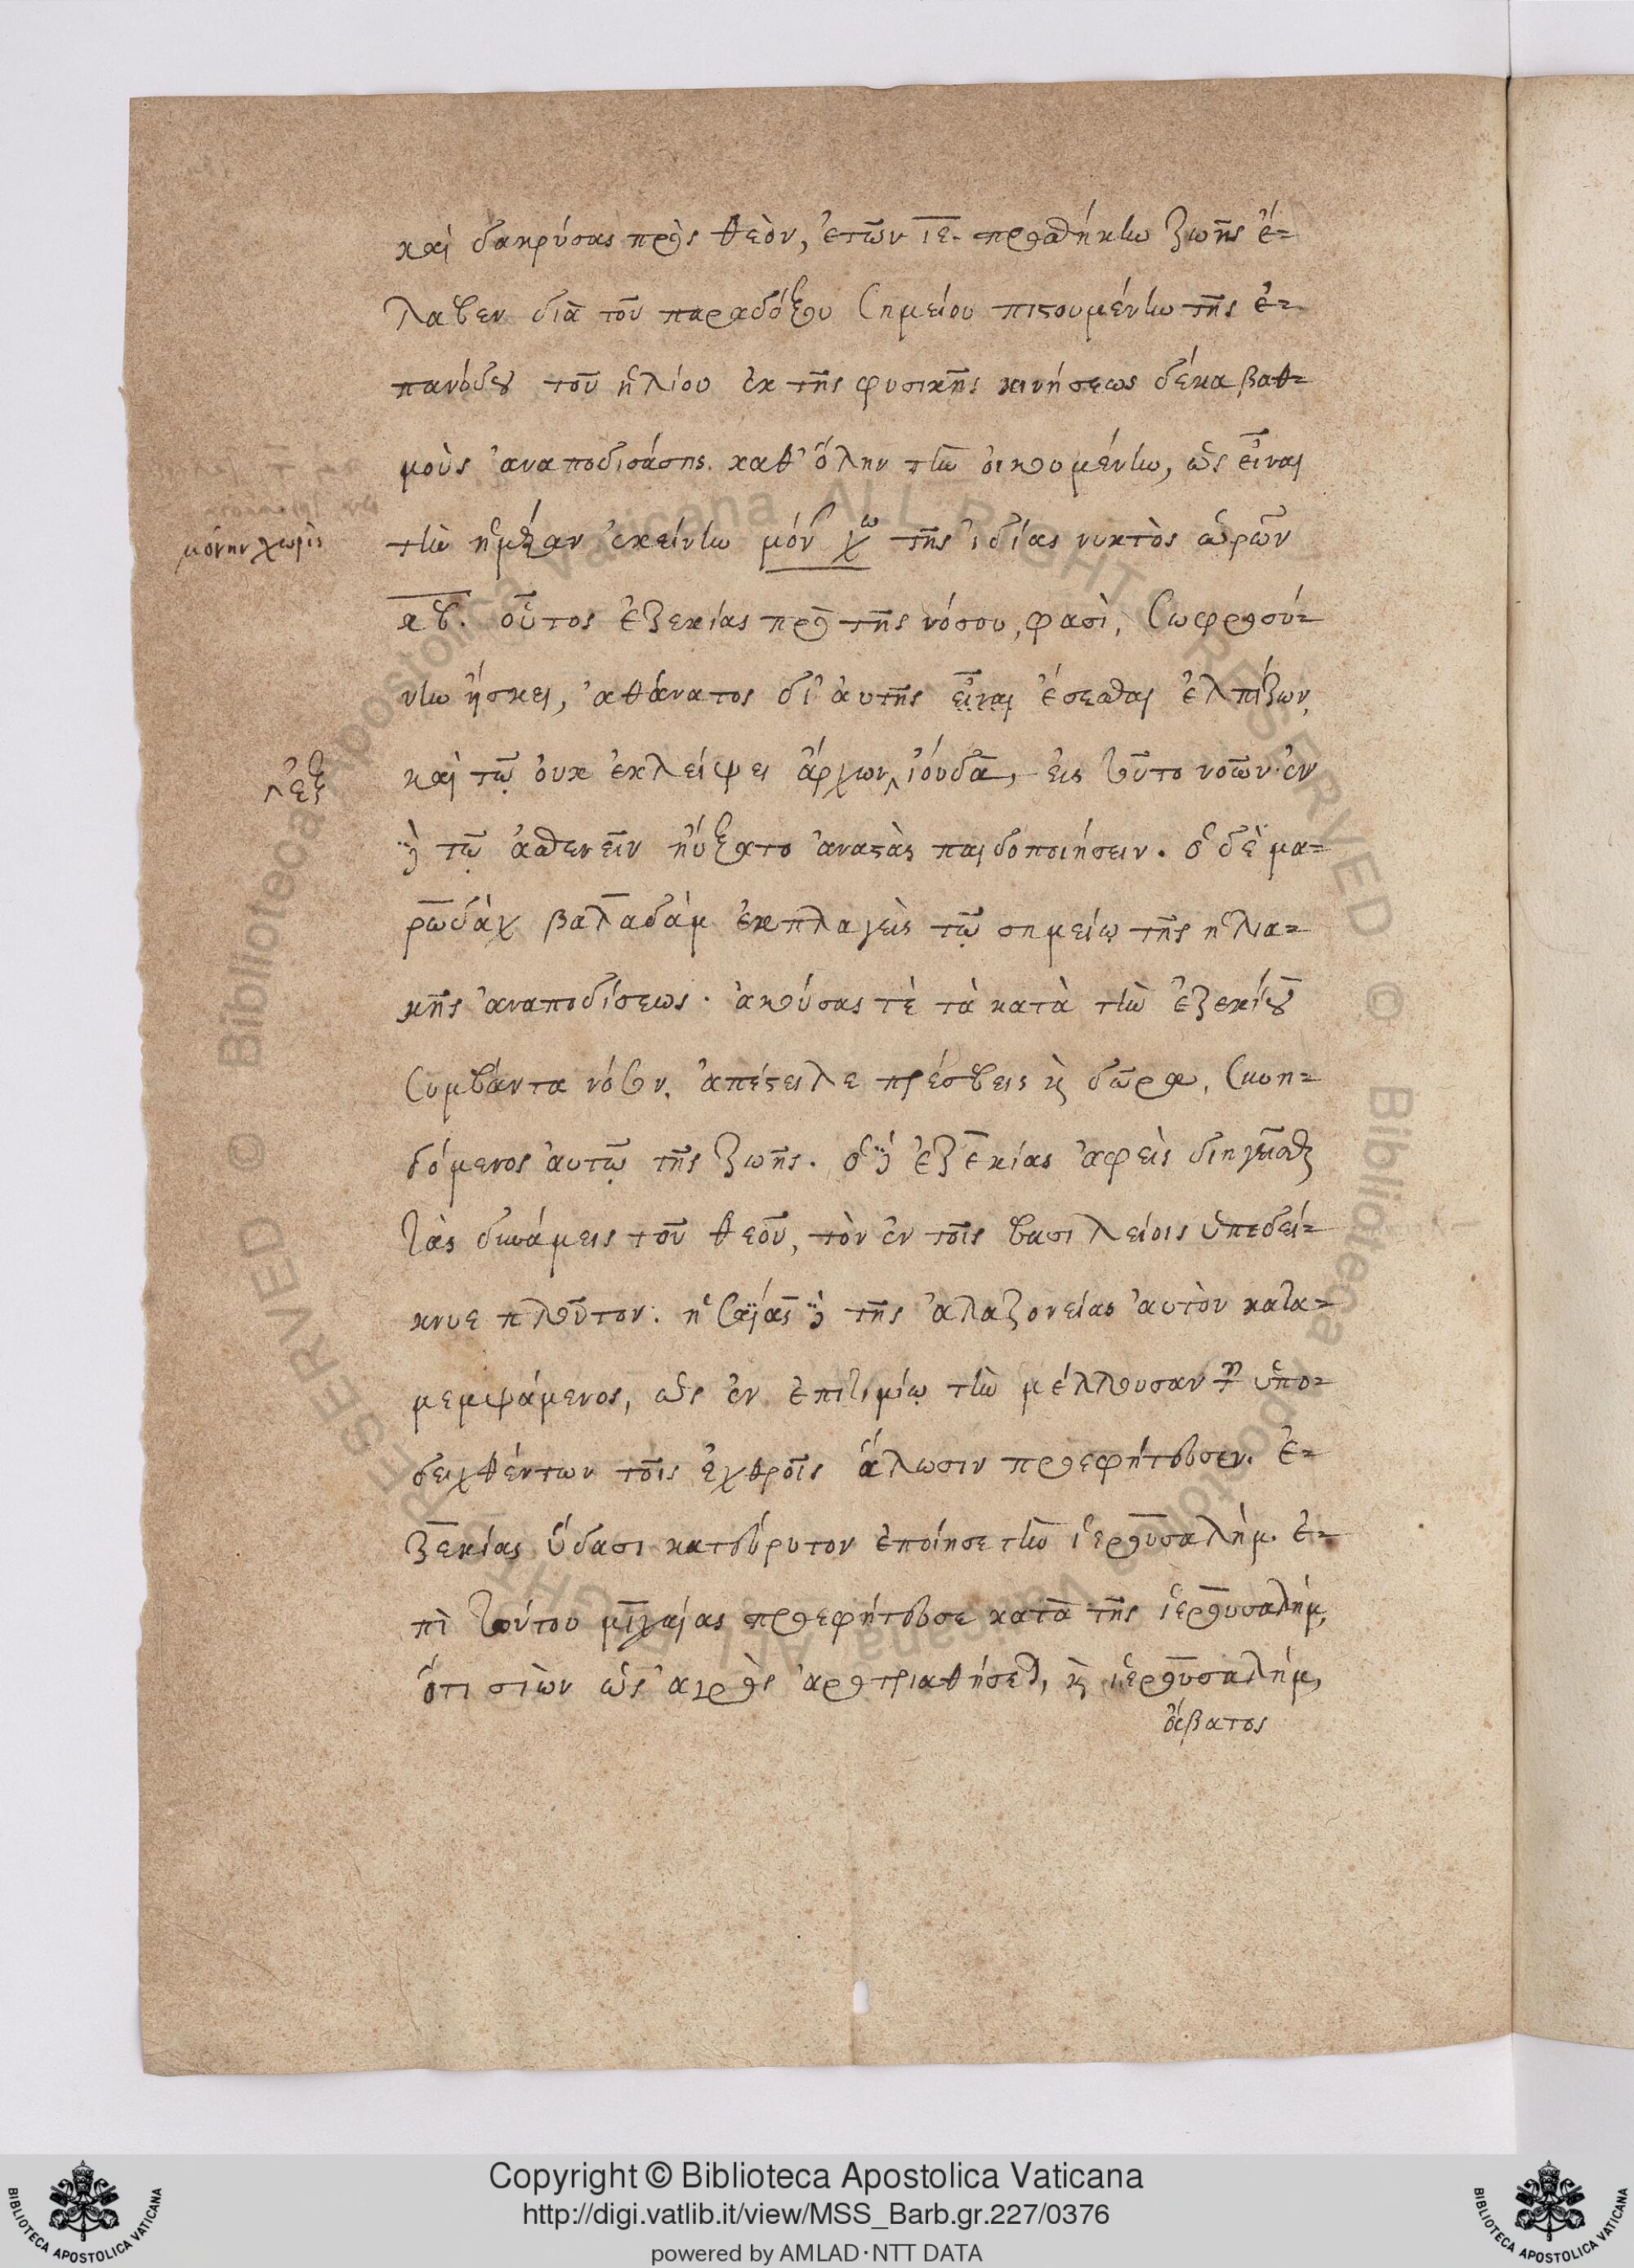 καὶ δακρύσας πρὸς θεὸν, ἐτῶν ιε. προσθήκην ζωῆς ἔ-
λαβεν διὰ τοῦ παραδόξου σημείου πιστουμένην τῆς ἐ-
πανόδου τοῦ ἡλίου ἐκ τῆς φυσικῆς κινήσεως δέκα βαθ-
μοὺς ἀναποδισάσης. καθ' ὅλην τὴν οἰκουμένην, ὡς εἶναι
μόνην χωρὶς
τὴν ἡμέραν ἐκείνην μόν χω τῆς ἰδίας νυκτὸς ὡρῶν
λβ. οὗτος ἐζεκίας πρὸ τῆς νόσου, φασὶ, σωφροσύ-
νην ἤσκει, ἀθάνατος δι' ἀυτῆς εἶναι ἔσεσθαι ἐλπίζων,
καὶ τῷ ὀυκ ἐκλείψει ἄρχων ἰούδα, εἰς τοῦτο νοῶν· ἐν
δὲ τῷ ἀσθενεῖν ηὔξατο ἀναστὰς παιδοποιήσειν. ὁ δὲ μα-
ρωδὰχ βαλαδὰμ ἐκπλαγεὶς τῷ σημείῳ τῆς ἡλια-
κῆς ἀναποδίσεως. ἀκούσας τὲ τὰ κατὰ τὴν ἐζεκίου
συμβάντα νόσον, ἀπέστειλε πρέσβεις κ δῶρα, συνη-
δόμενος ἀυτῷ τῆς ζωῆς. ὁ δὲ ἐζεκίας ἀφεὶς διηγεῖσθαι
τὰς δυνάμεις τοῦ θεοῦ, τὸν ἐν τοῖς βασιλείοις ὑπεδεί-
κνυε πλοῦτον. ἡσαΐας δὲ τῆς ἀλαζονείας ἀυτὸν κατα-
μεμψάμενος, ὡς ἐν ἐπιτιμίῳ τὴν μέλλουσαν τῶν ὑπο-
δειχθέντων τοῖς ἐχθροῖς ἅλωσιν προεφήτευσεν. ἐ-
ζεκίας ὕδασι κατεύρυτον ἐποίησε τὴν ἱερουσαλὴμ. ἐ-
πὶ τούτου μιχαίας προεφήτευσε κατὰ τῆς ἱερουσαλήμ,
ὅτι σιὼν ὡς ἀγρὸς ἀροτριαθήσεται, κ ἱερουσαλήμ,
ἄβατος
Copyright © Biblioteca Apostolica Vaticana
http://digi.vatlib.it/view/MSS_Barb.gr.227/0376
powered by AMLAD·NTT DATA
BIBLIOTECA APOSTOLICA VATICANA
BIBLIOTECA APOSTOLICA VATICANA